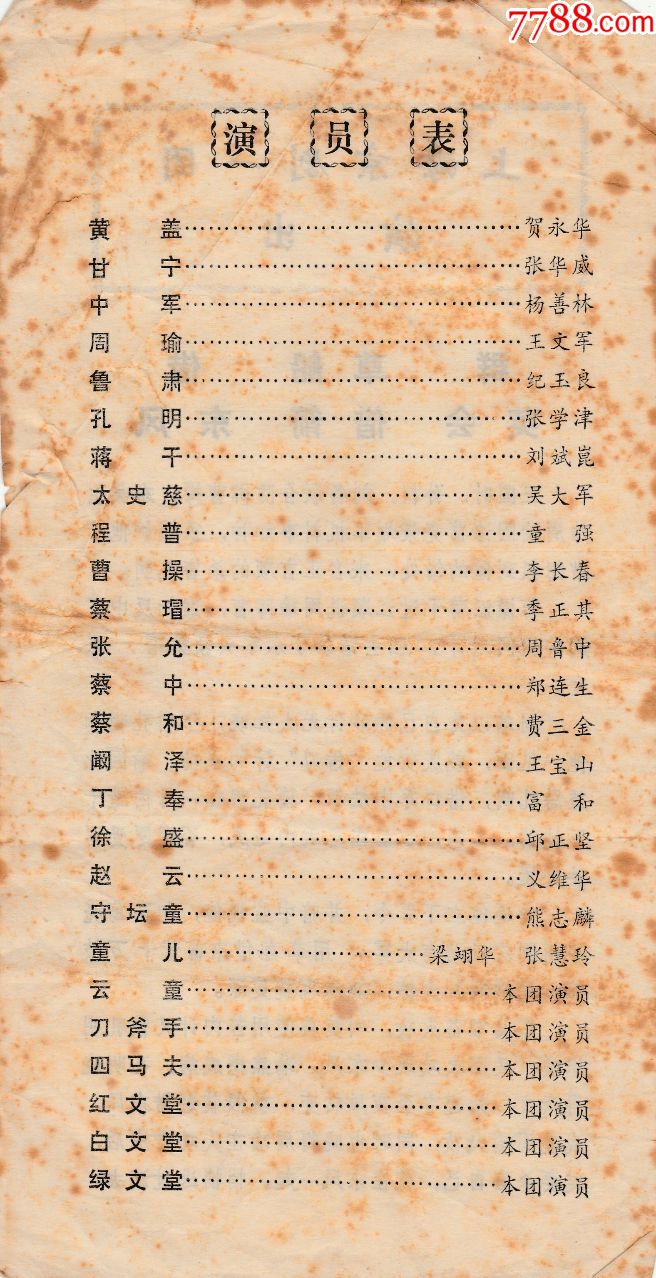 7788.com
演员表
黄盖……贺永华
甘宁……张华威
中军……杨善林
周瑜……王文军
鲁肃……纪玉良
孔明……张学津
蒋干……刘斌崑
太史慈……吴大军
程普……童强
曹操……李长春
蔡瑁……季正其
张允……周鲁中
蔡中……郑连生
蔡和……费三金
阚泽……王宝山
丁奉……富和
徐盛……邱正坚
赵云……义维华
守坛童……熊志麟
童儿……梁翊华 张慧玲
云童……本团演员
刀斧手……本团演员
四马夫……本团演员
红文堂……本团演员
白文堂……本团演员
绿文堂……本团演员